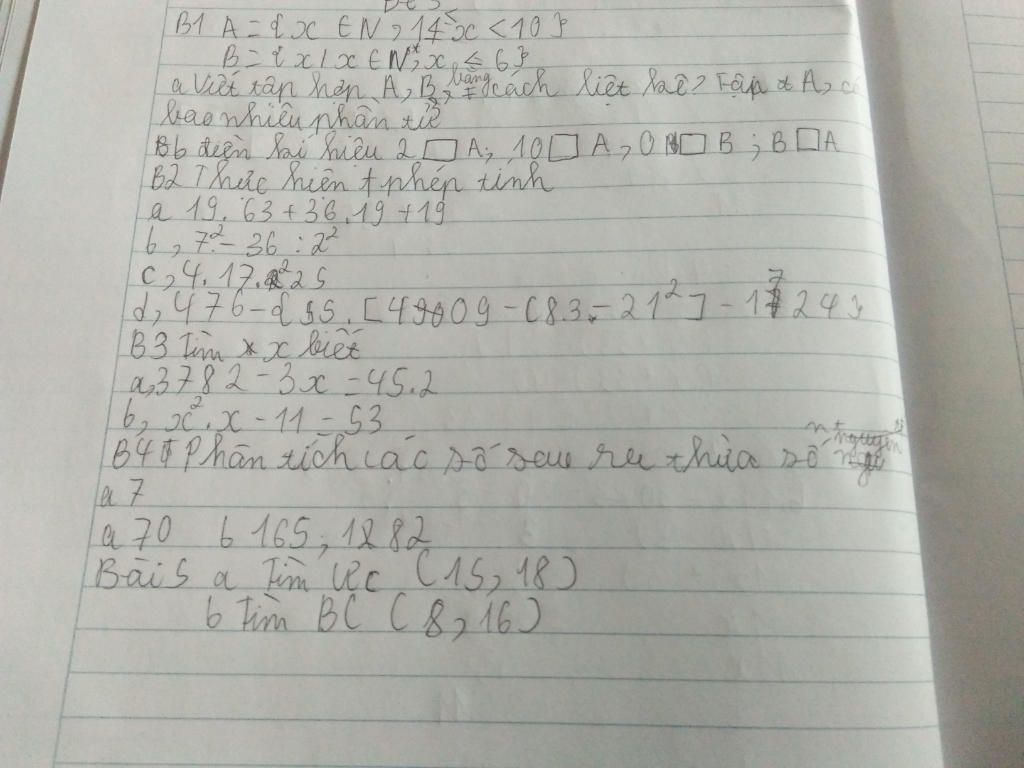 B1 A = { x ∈ N, 14 x < 10 }
B = { x / x ∈ N*, x ≤ 6 }
a Viết tập hợp A, B, bằng cách liệt kê? Tập A, có
bao nhiêu phần tử
b điền kí hiệu 2 □ A; 10 □ A, 0 □ B; B □ A
B2 Thực hiện phép tính
a 19. 63 + 36. 19 + 19
b, 7² - 36 : 2²
c, 4. 17. 25
d, 476 - { 55. [49009 - (83 - 21²] - 1724}
B3 Tìm x biết
a, 3782 - 3x = 45.2
b, x². x - 11 = 53
B4 Phân tích các số sau ra thừa số n t
a 7
a 70 b 165, 1282
Bài 5 a Tìm ƯC (15, 18)
b Tìm BC (8, 16)